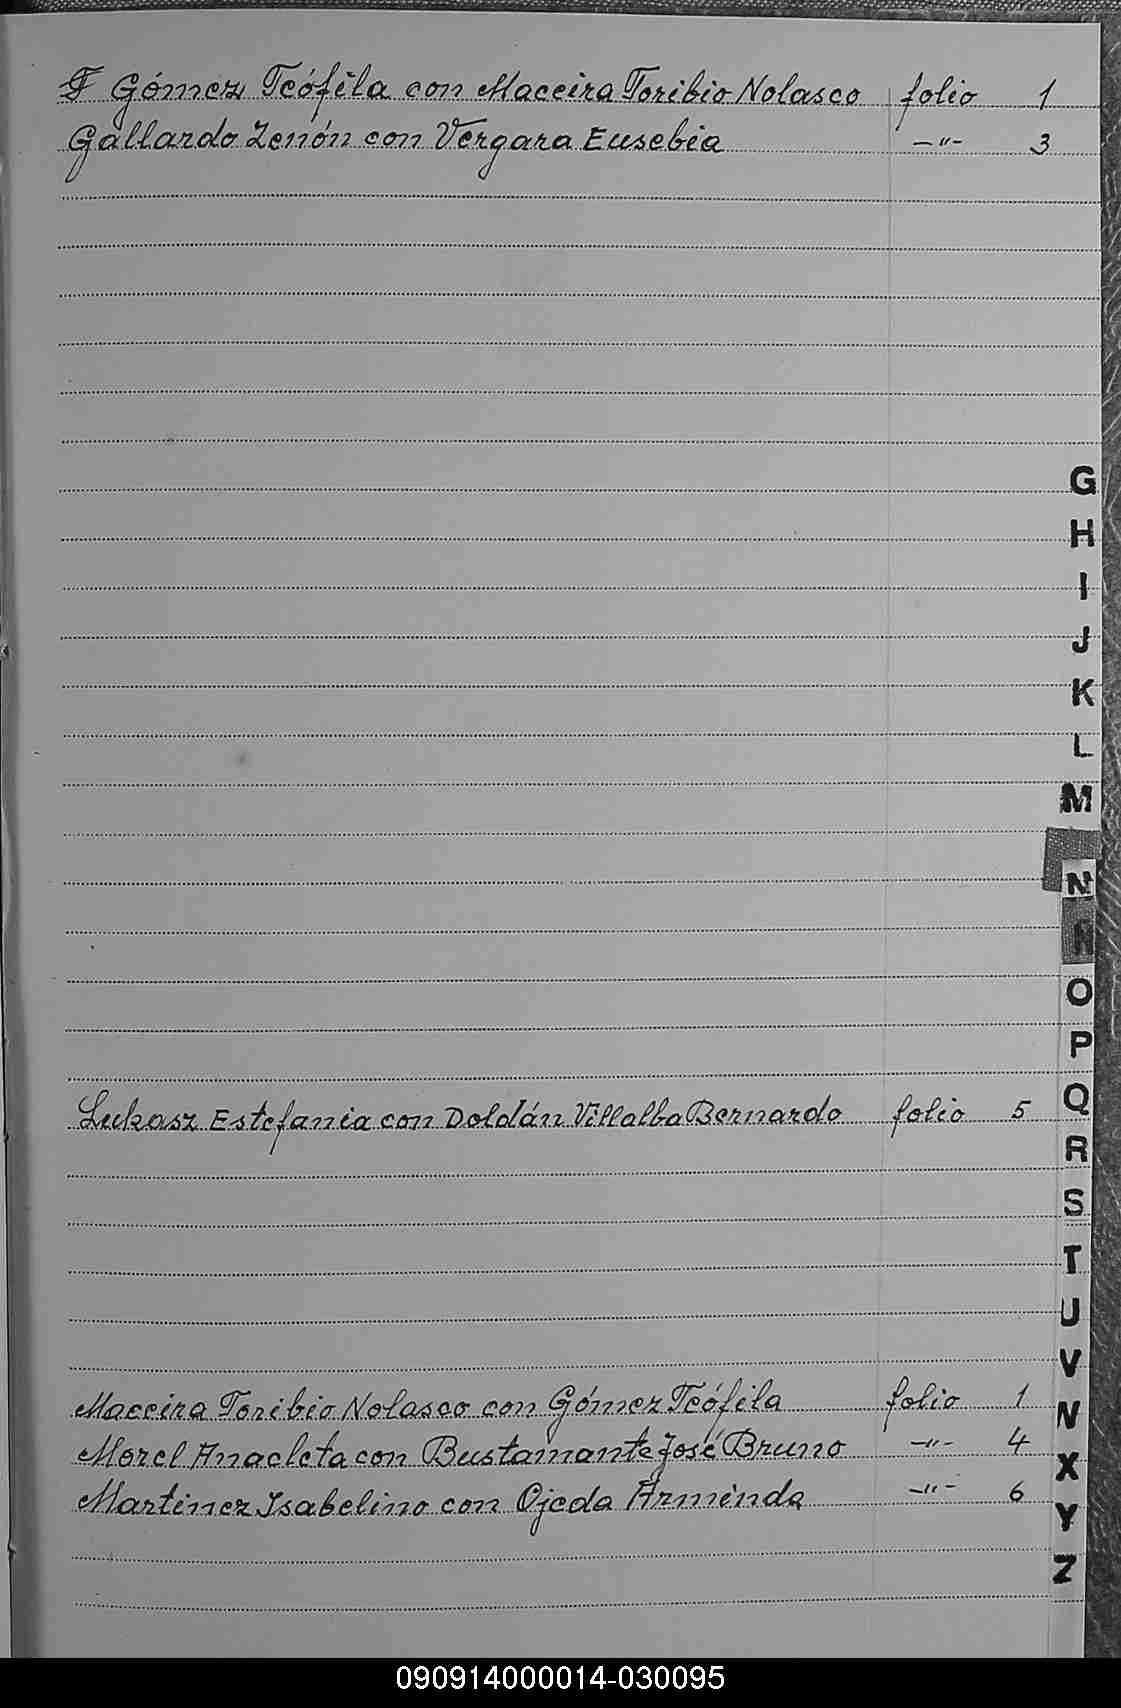 F Gómez Teófila con Maceira Toribio Nolasco folio 1
Gallardo Zenón con Vergara Eusebia -"- 3
G
H
I
J
K
L
M
N
Ñ
O
P
Lukasz Estefania con Doldán Villalba Bernardo folio 5
Q
R
S
T
U
V
Maceira Toribio Nolasco con Gómez Teófila folio 1
Morel Anacleta con Bustamante José Bruno -"- 4
Martinez Isabelino con Ojeda Arminda -"- 6
N
X
Y
Z
090914000014-030095